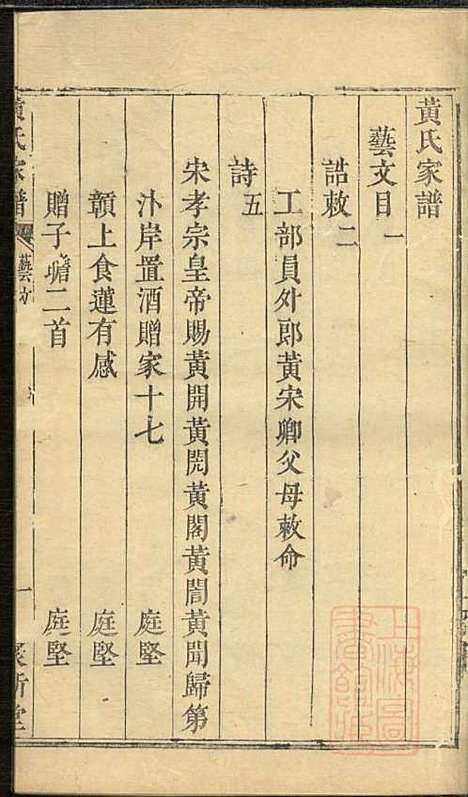 黃氏家譜
藝文目一
誥敕二
工部員外郎黃宋卿父母敕命
詩五
宋孝宗皇帝賜黃開黃閌黃閣黃誾黃聞歸第
汴岸置酒贈家十七 庭堅
贛上食蓮有感 庭堅
贈子𤩽二首 庭堅
黃氏家譜 藝文 一 聚斯堂